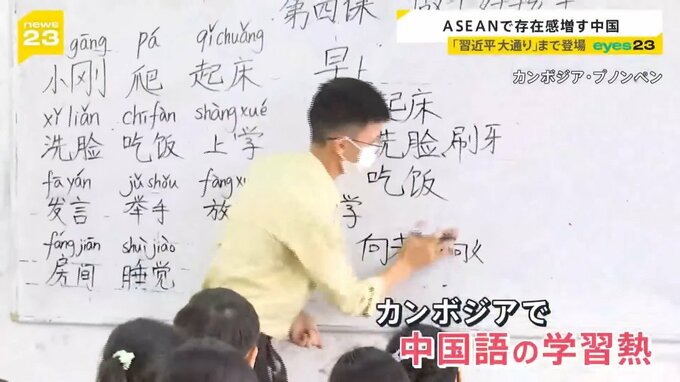 news
23
ASEANで存在感増す中国
「習近平大通り」まで登場 eyes23
カンボジア・プノンペン
第四课
gāng pá qǐchuǎng
小刚 爬 起床 早上
xǐ liǎn chīfàn shàngxué 起床
洗脸 吃饭 上学 洗脸、刷牙
fā yán jǔ shǒu fàngxu 吃饭
发言 举手 放 学
fángjiān shuìjiào
房间 睡觉
カンボジアで
中国語の学習熱